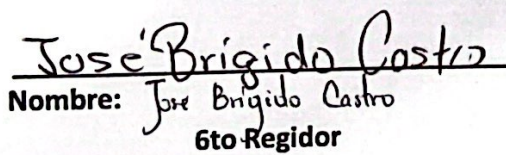 José Brigido Castro
Nombre: Jose Brigido Castro
6to Regidor